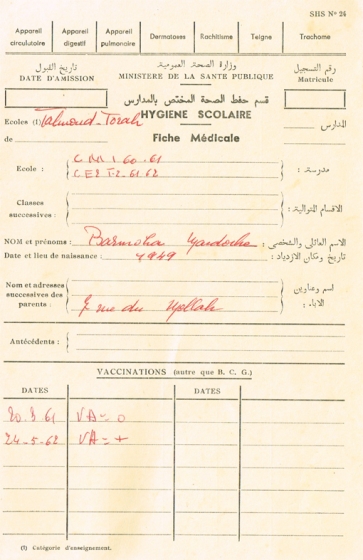 SHS Nº 24
Appareil circulatoire
Appareil digestif
Appareil pulmonaire
Dermatoses
Rachitisme
Teigne
Trachome
تاريخ القبول
وزارة الصحة العمومية
رقم التسجيل
DATE D'ADMISSION
MINISTERE DE LA SANTE PUBLIQUE
Matricule
قسم حفظ الصحة المختص بالمدارس
Ecoles (1) Talmoud-Torah
HYGIENE SCOLAIRE
المدارس
de
Fiche Médicale
Ecole :
CM1 60-61
مدرسة :
61-62
Classes successives :
الاقسام المتوالية :
NOM et prénoms :
الاسم العائلي والشخصي :
Date et lieu de naissance : 1949
تاريخ ومكان الازدياد :
Nom et adresses successives des parents :
rue du Mellah
اسم وعناوين الاباء :
Antécédents :
VACCINATIONS (autre que B. C. G.)
DATES
DATES
61 VA = 0
24-5-62 VA = +
(1) Catégorie d'enseignement.